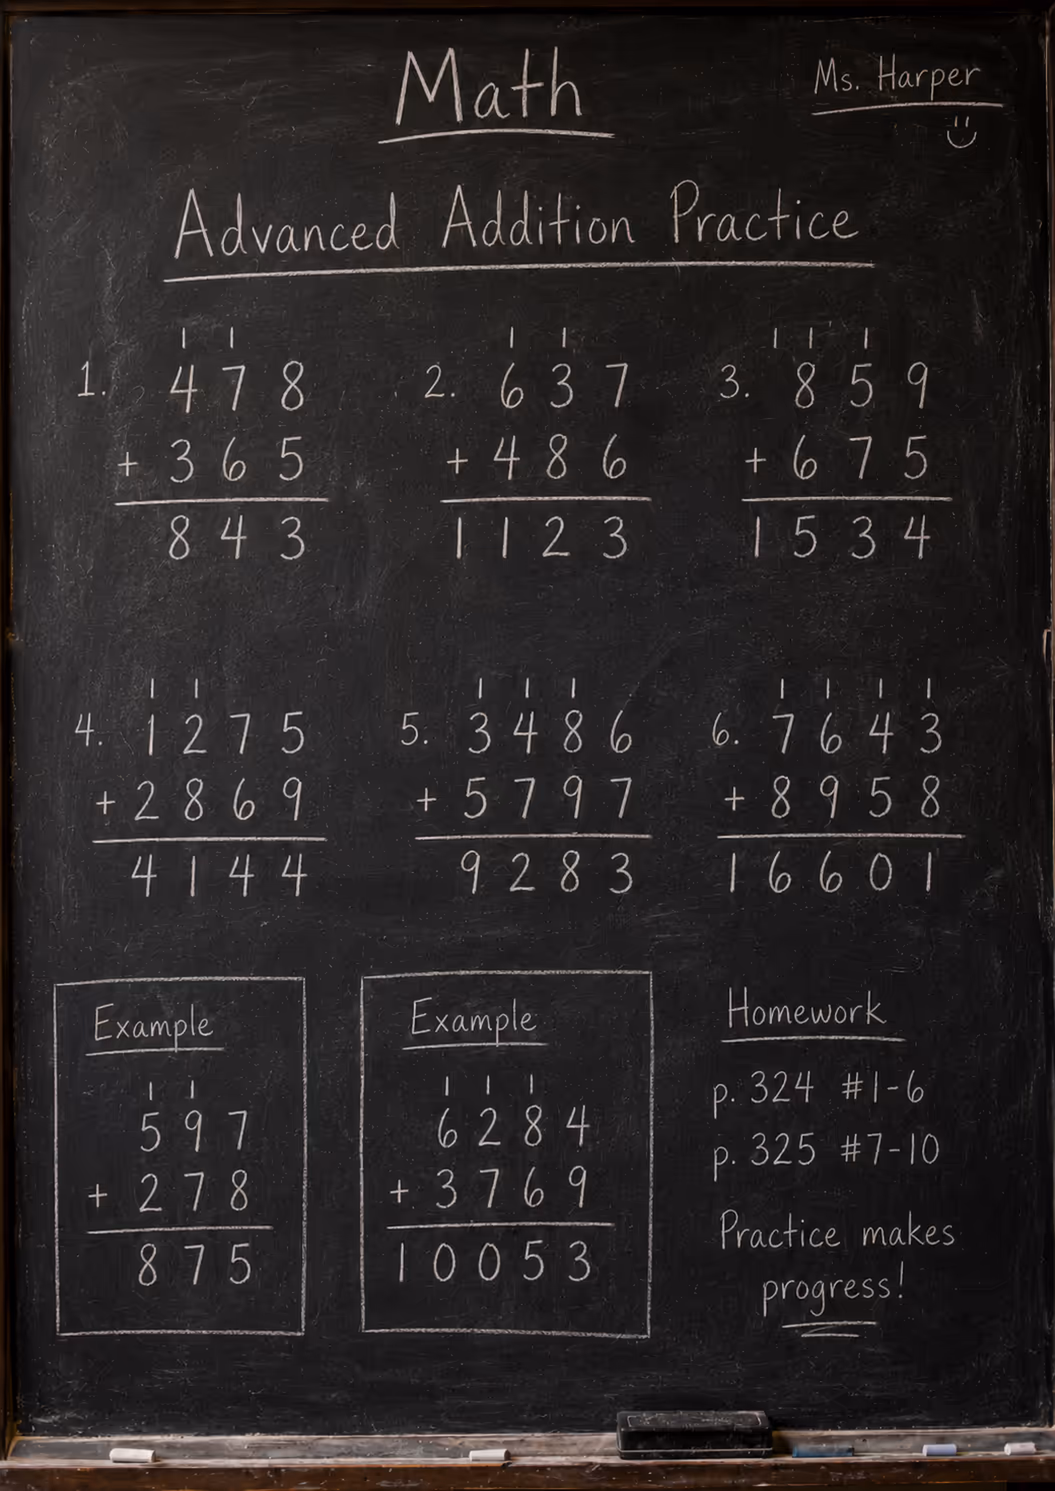 Math
Ms. Harper
Advanced Addition Practice
1 1
1. 4 7 8
+ 3 6 5
8 4 3
1 1
2. 6 3 7
+ 4 8 6
1 1 2 3
1 1 1
3. 8 5 9
+ 6 7 5
1 5 3 4
1 1
4. 1 2 7 5
+ 2 8 6 9
4 1 4 4
1 1 1
5. 3 4 8 6
+ 5 7 9 7
9 2 8 3
1 1 1 1
6. 7 6 4 3
+ 8 9 5 8
1 6 6 0 1
Example
1 1
5 9 7
+ 2 7 8
8 7 5
Example
1 1 1
6 2 8 4
+ 3 7 6 9
1 0 0 5 3
Homework
p. 324 #1-6
p. 325 #7-10
Practice makes
progress!